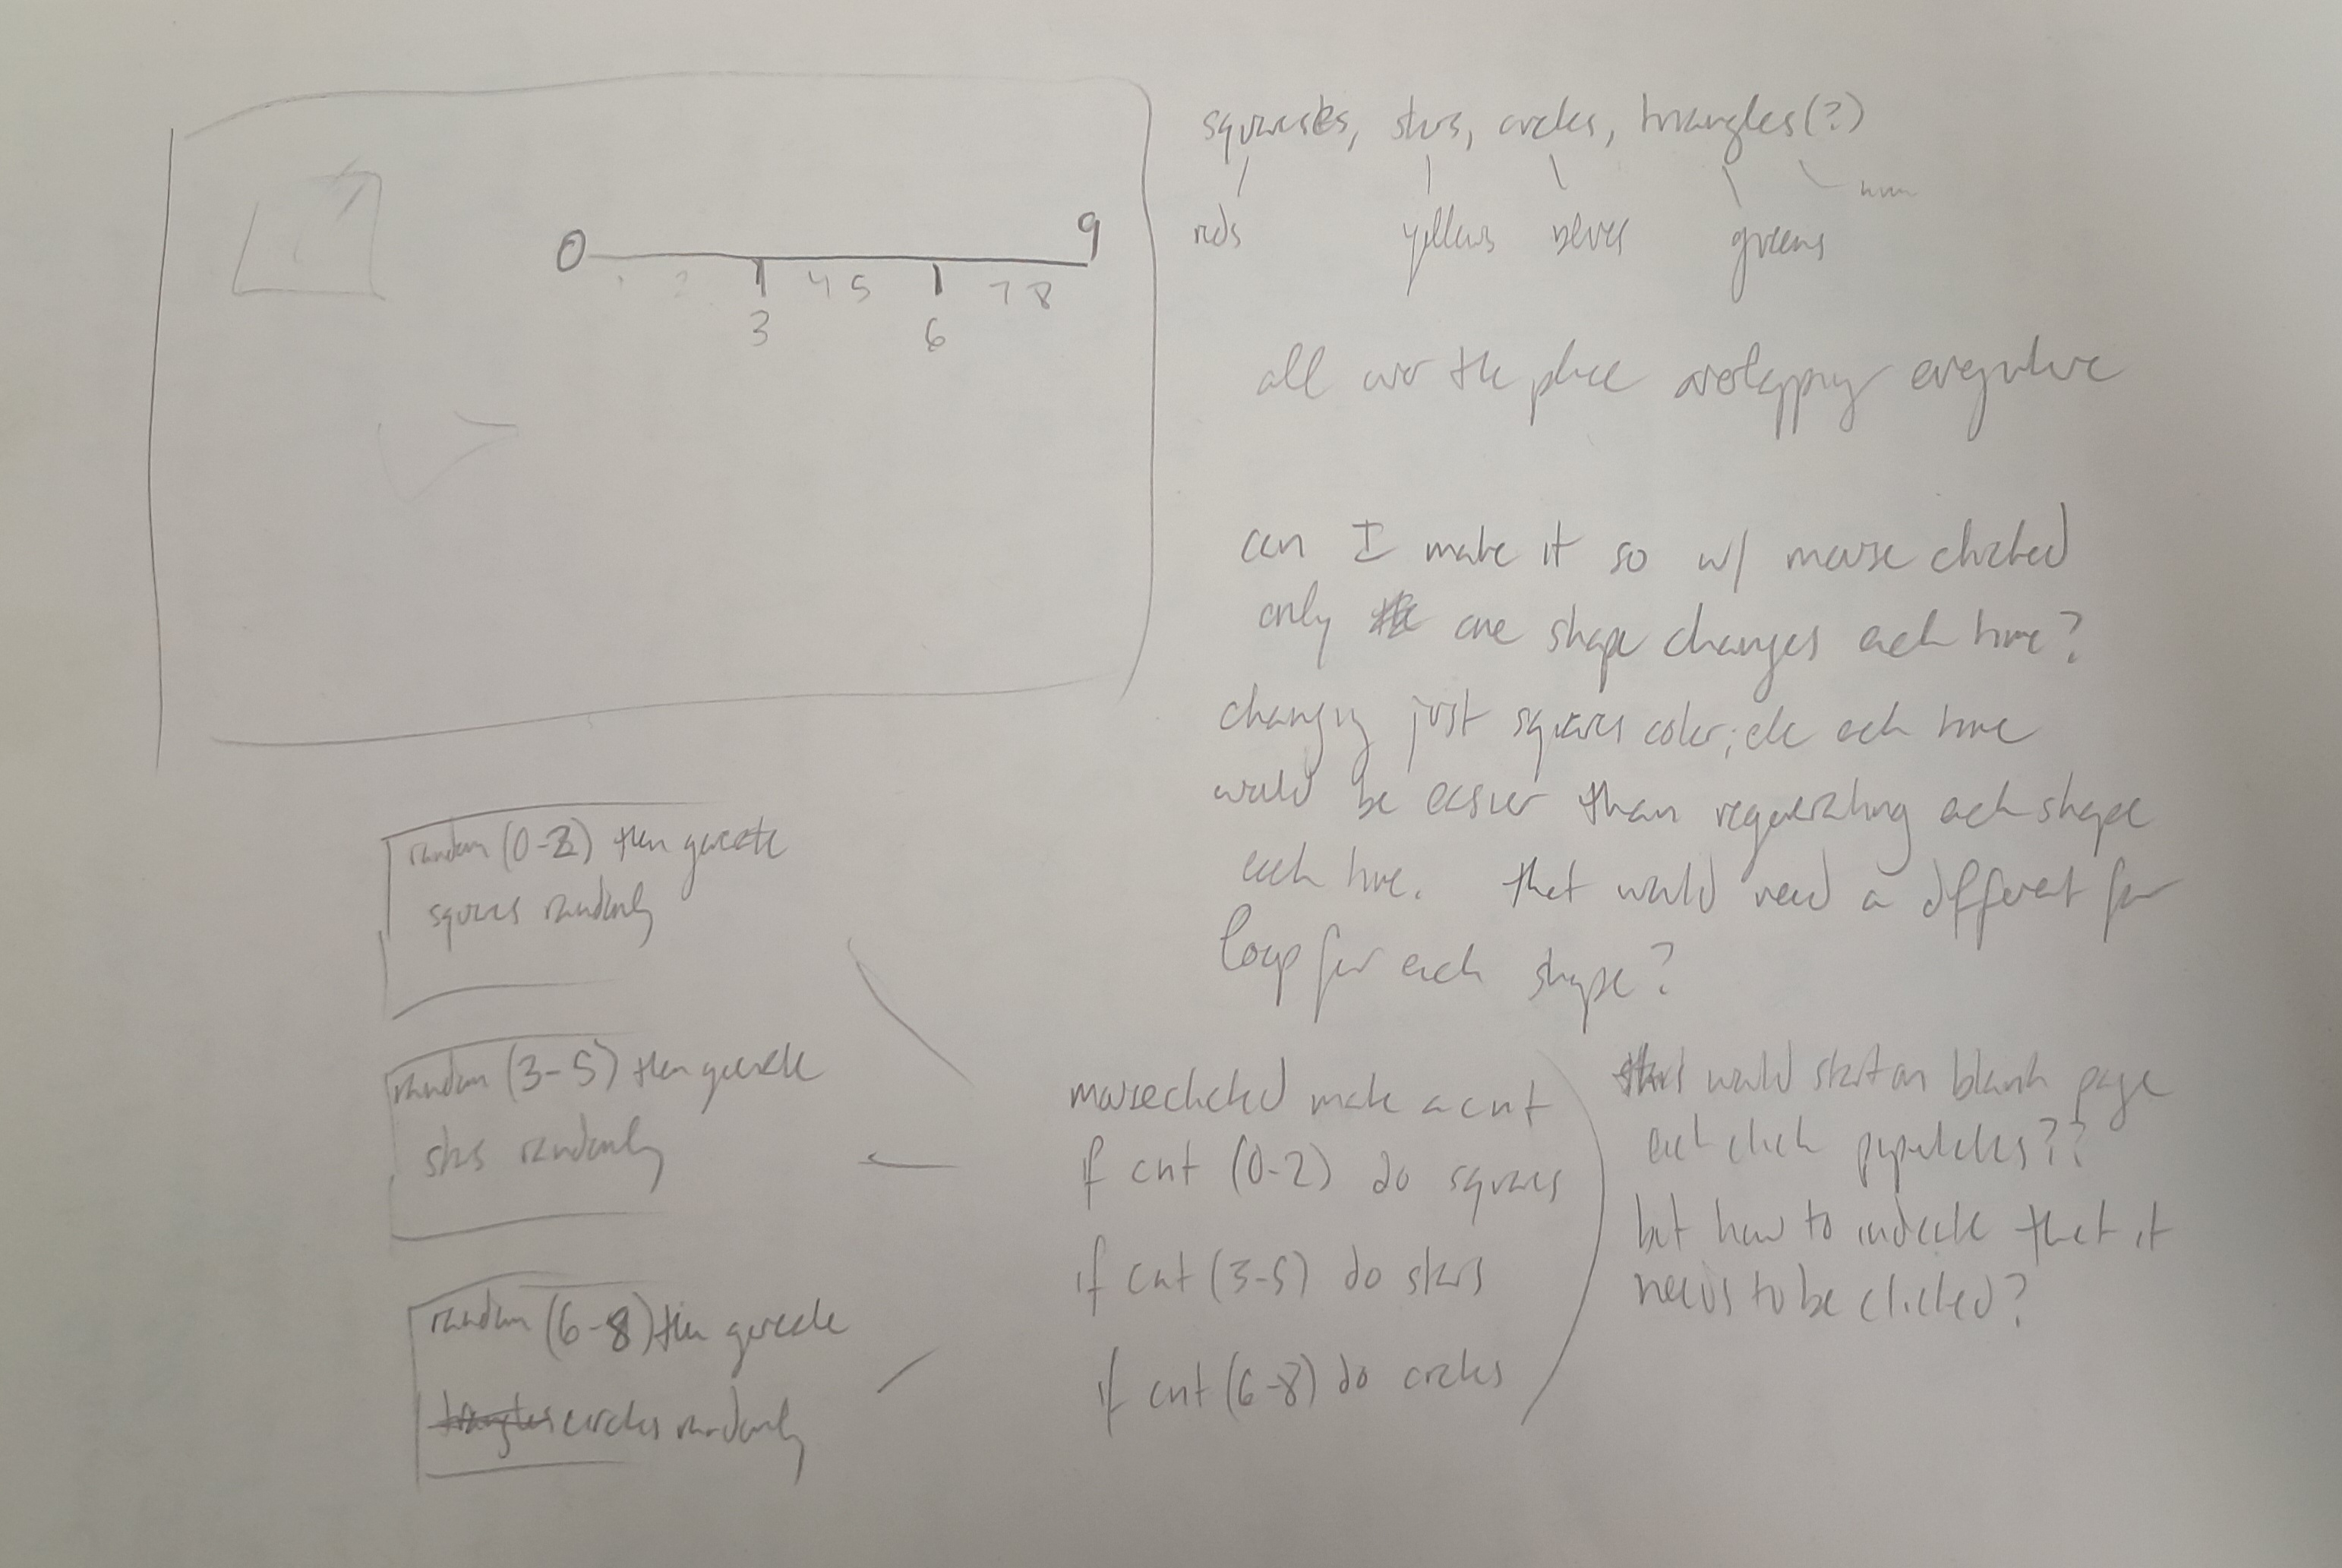 0 9
4 5 7 8
3 6
squares, stars, circles, triangles(?)
reds yellows blues greens
all over the place overlapping everywhere
can I make it so w/ mouse clicked
only one shape changes each time?
changing just squares color, etc each time
would be easier than regenerating each shape
each time. that would need a different for
loop for each shape?
random (0-2) then generate
squares randomly
random (3-5) then generate
stars randomly
random (6-8) then generate
triangles circles randomly
mouseclicked make a cnt
if cnt (0-2) do squares
if cnt (3-5) do stars
if cnt (6-8) do circles
would start on blank page
each click populates??
but how to indicate that it
needs to be clicked?